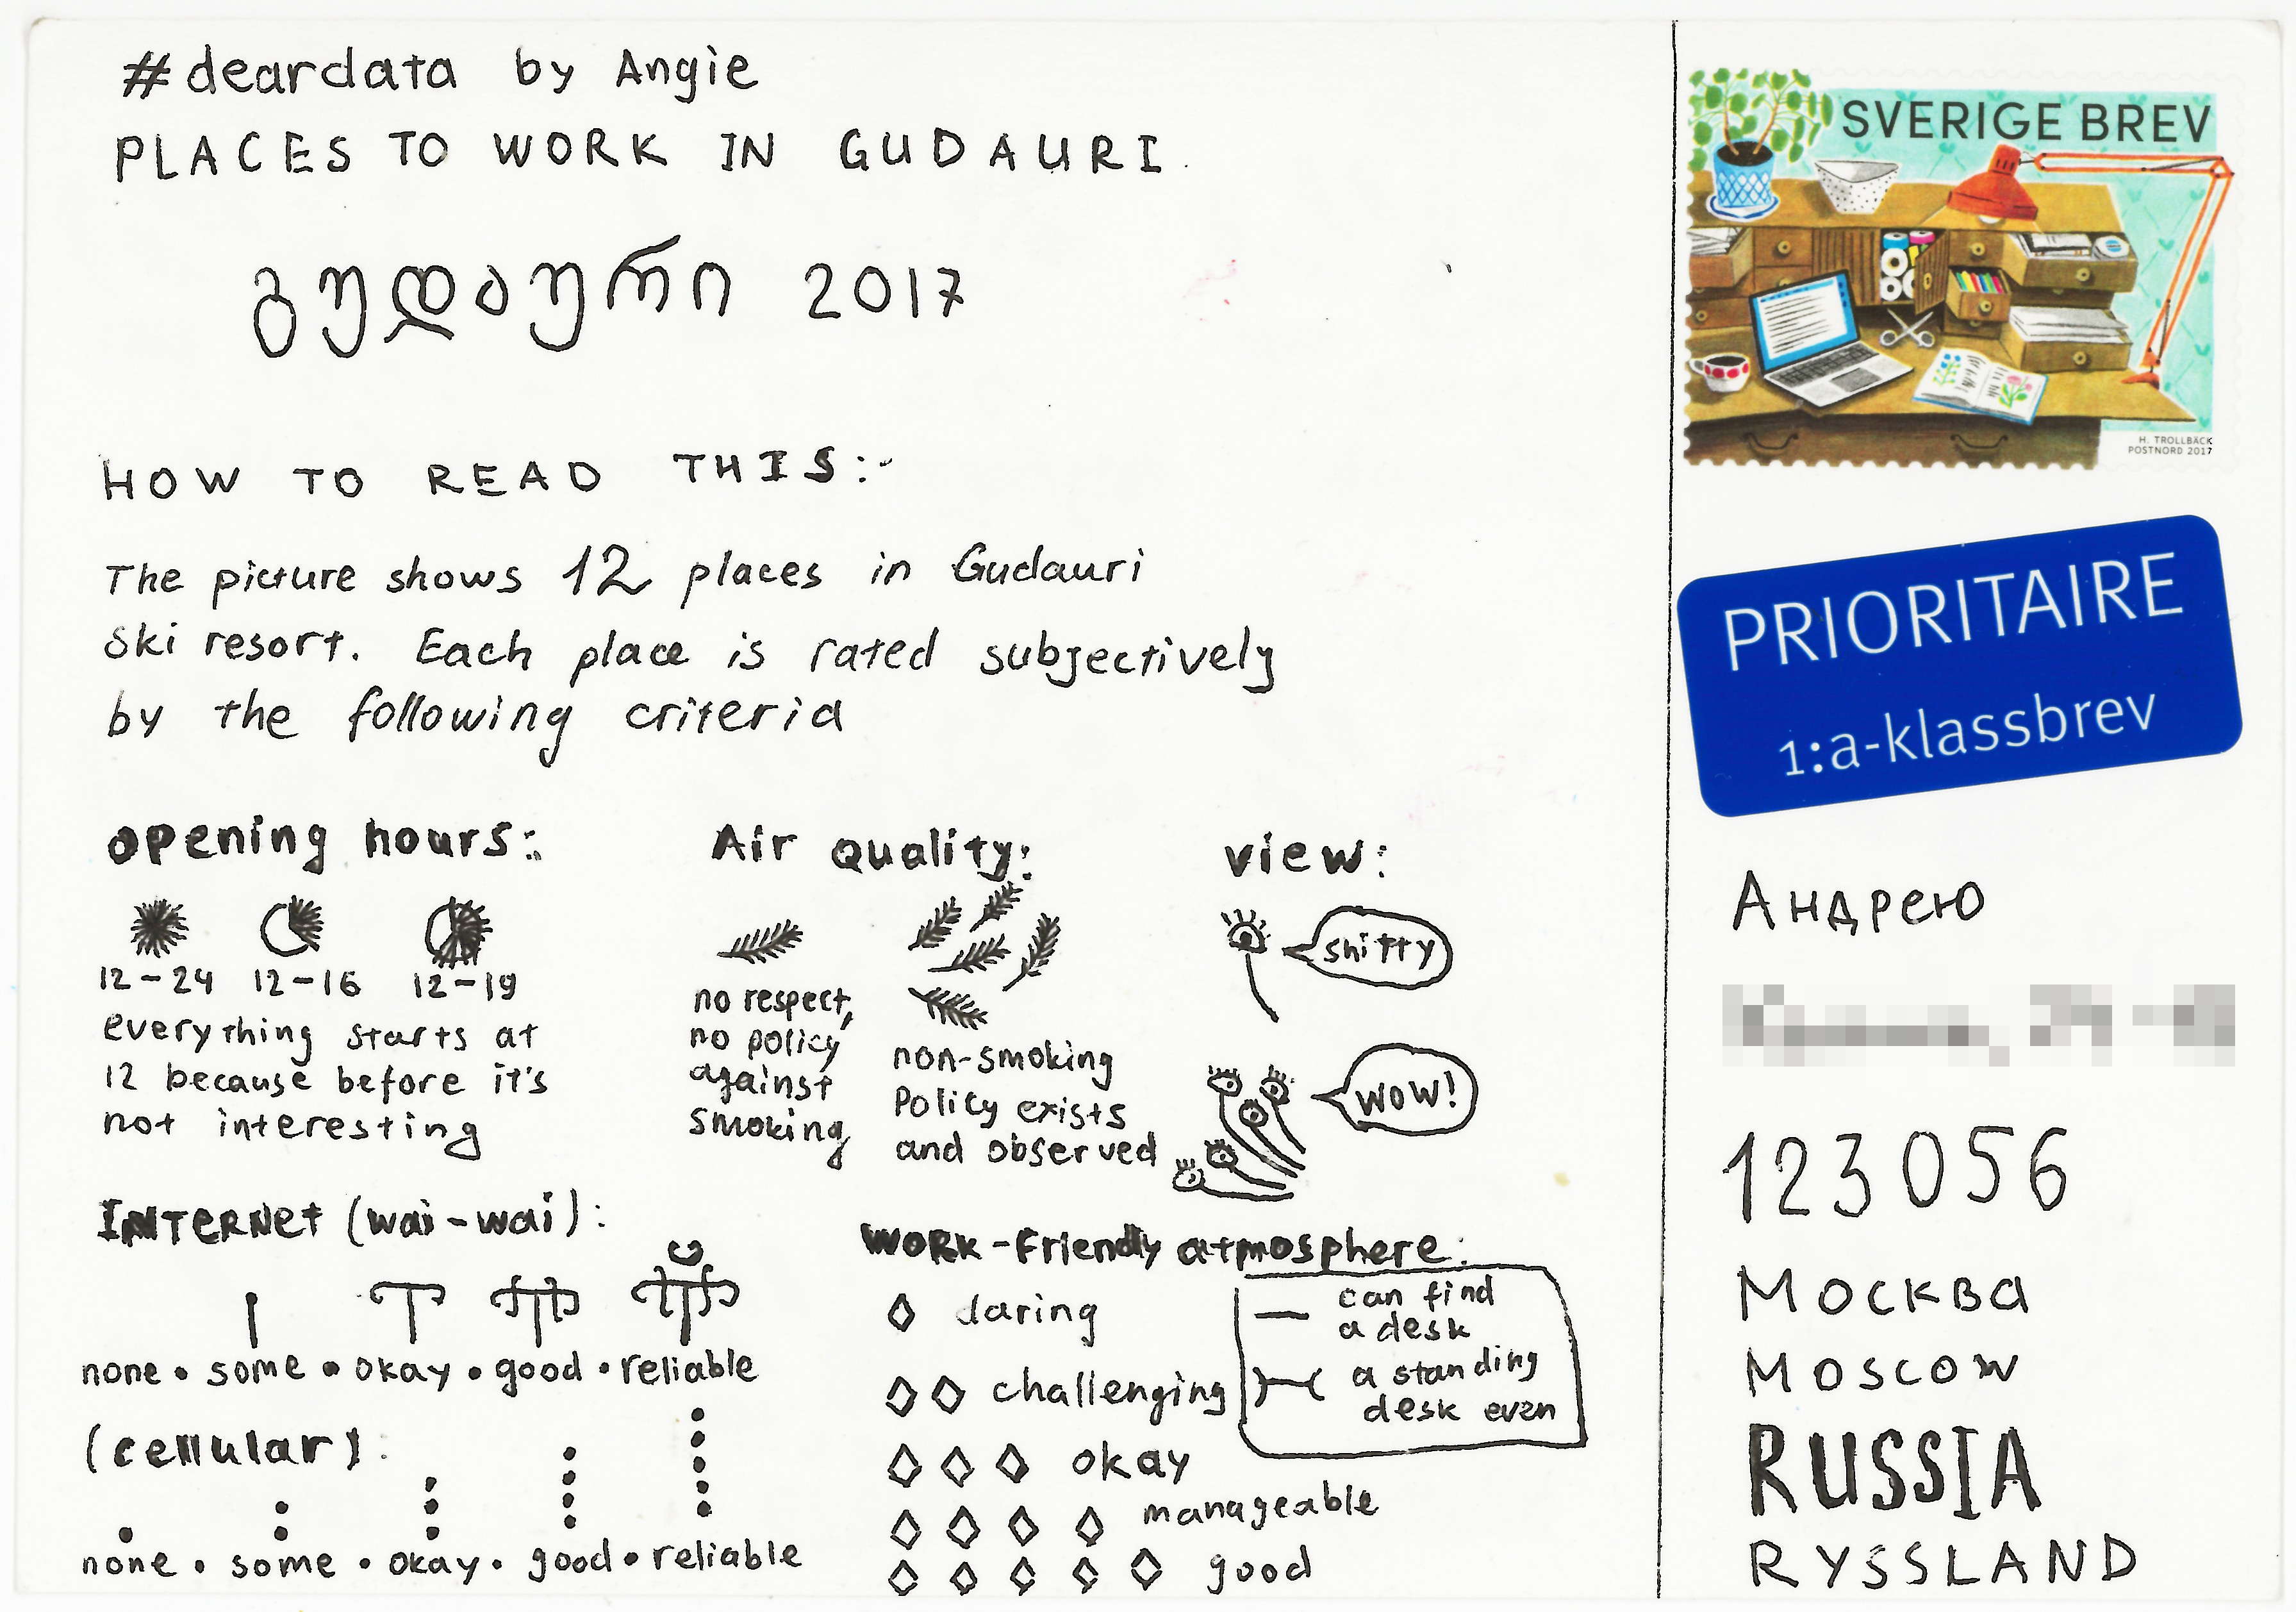 #deardata by Angie
PLACES TO WORK IN GUDAURI.
გუდაური 2017
HOW TO READ THIS:
The picture shows 12 places in Gudauri
Ski resort. Each place is rated subjectively
by the following criteria
opening hours:
12-24 12-16 12-19
everything starts at
12 because before it's
not interesting
Air quality:
no respect,
no policy
against
smoking
non-smoking
Policy exists
and observed
view:
shitty
wow!
INTERNet (wai-wai):
none • some • okay • good • reliable
(cellular):
none • some • okay • good • reliable
WORK-Friendly atmosphere:
daring
challenging
okay
manageable
good
can find
a desk
a standing
desk even
SVERIGE BREV
H. TROLLBÄCK
POSTNORD 2017
PRIORITAIRE
1:a-klassbrev
Андрею
123056
Москва
Moscow
RUSSIA
RYSSLAND